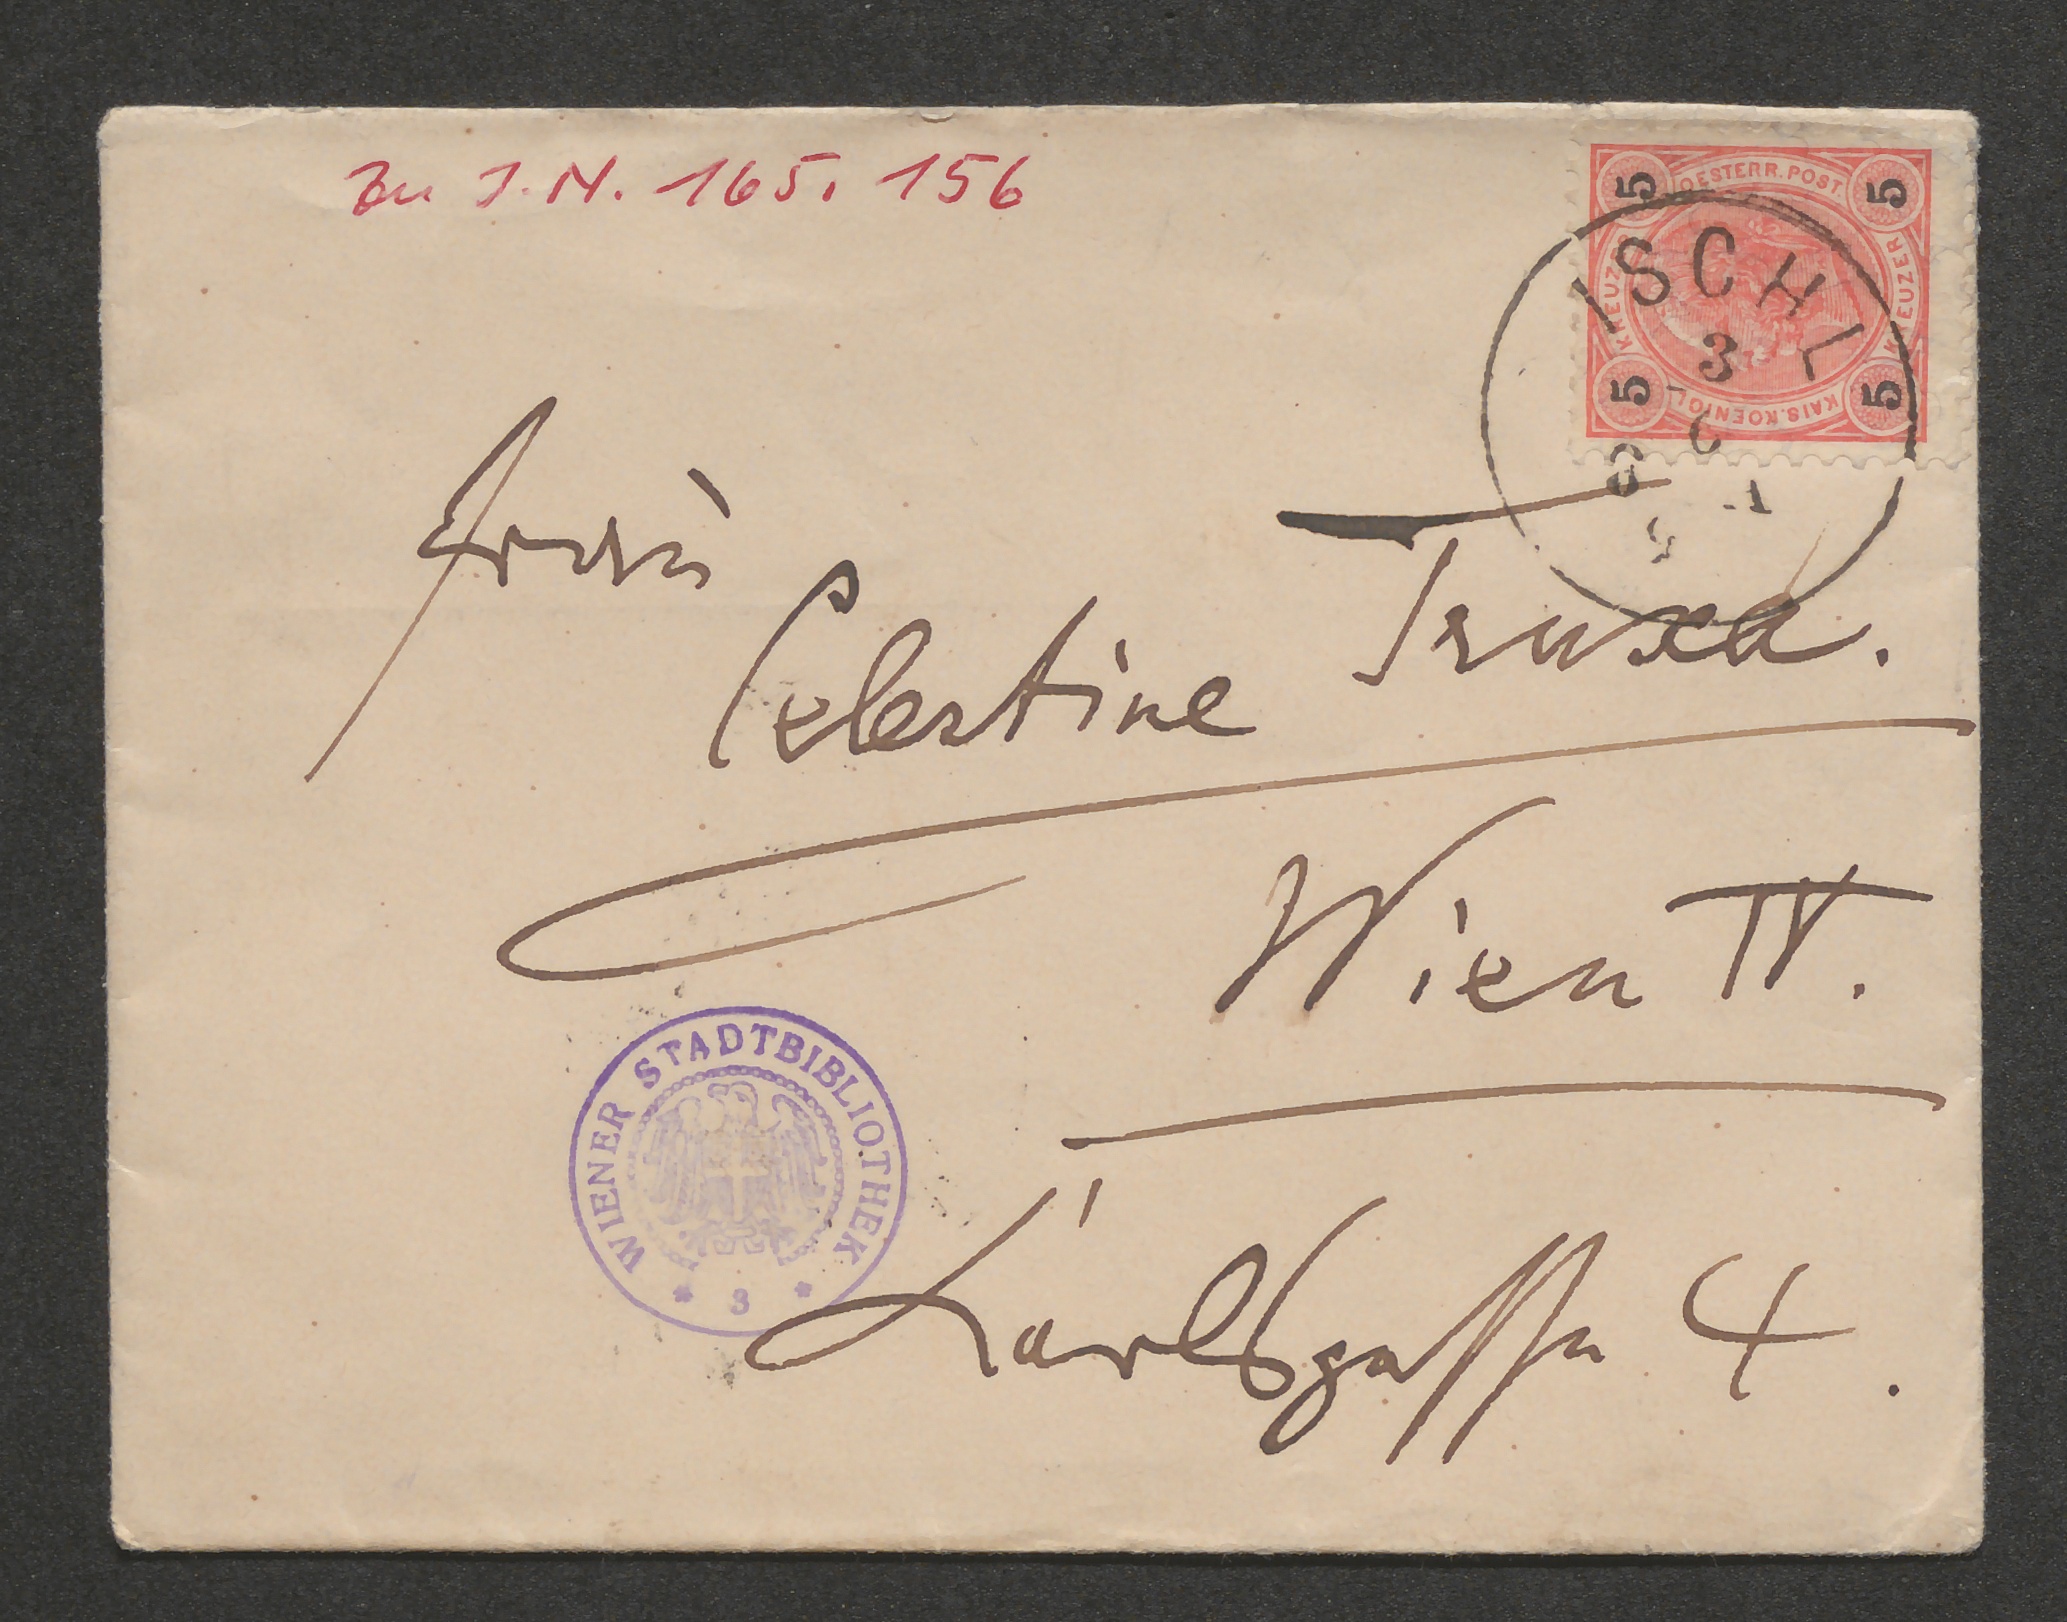 Zu J.N. 165.156
5 OESTERR. POST. 5
KREUZER KREUZER
5 KAIS. KOENIGL. 5
ISCHL
3
6
Frau
Celestine Truxa.
Wien IV.
Karlsgasse 4.
WIENER STADTBIBLIOTHEK
* 3 *